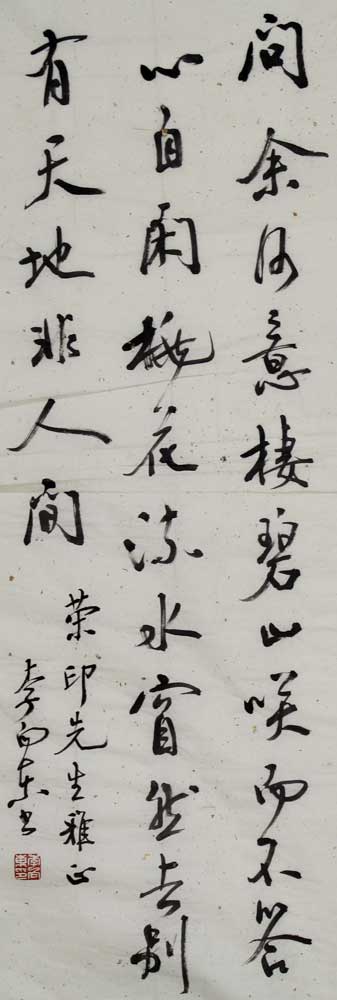 问余何意栖碧山咲而不答
心自闲桃花流水窅然去别
有天地非人间
荣印先生雅正
李向东书